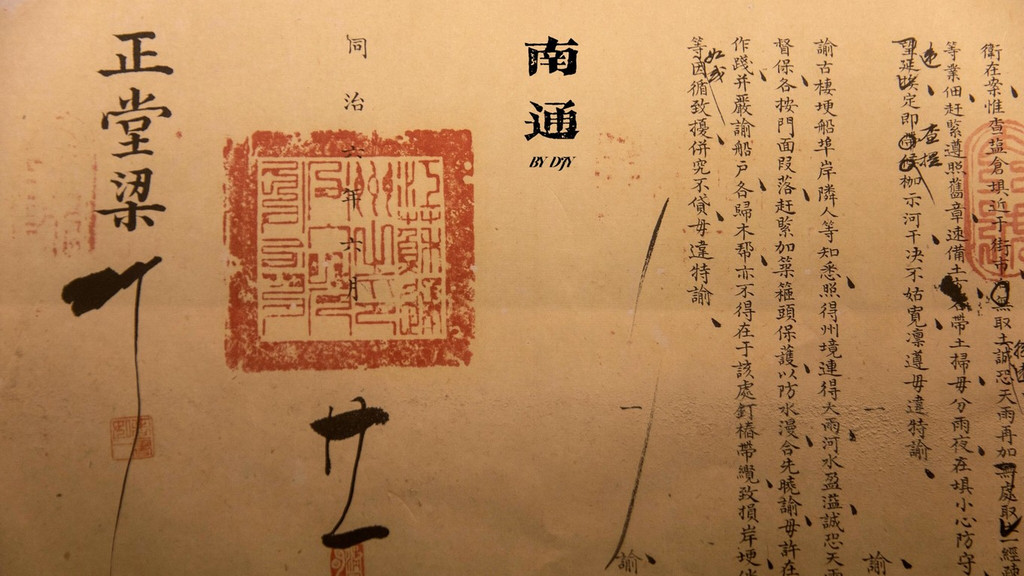 衛在案惟查鹽倉填近于街市
無取土誠恐天雨再加
處取
一經
等業佃赶緊遵照舊章速備土
帶土掃毋分雨夜在填小心防守
定即
枷示河干决不姑寬凛遵毋違特諭
諭
諭古棲埂船埠岸隣人等知悉照得州境連得大雨河水盈溢誠恐天雨
督保各按門面叚落赶緊加築箍頭保護以防水漫合先曉諭毋許在
作踐并嚴諭船户各歸木帮亦不得在于該處釘樁帶纜致損岸埂
等因循致擾併究不貸毋違特諭
諭
南通
BY DTY
同治六年六月
廿五
正堂梁